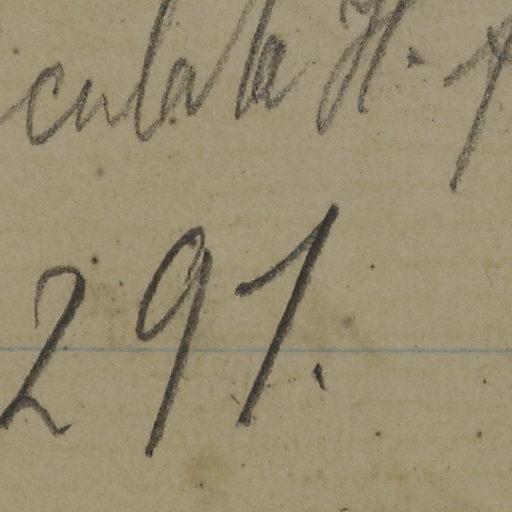 culata H.
291.